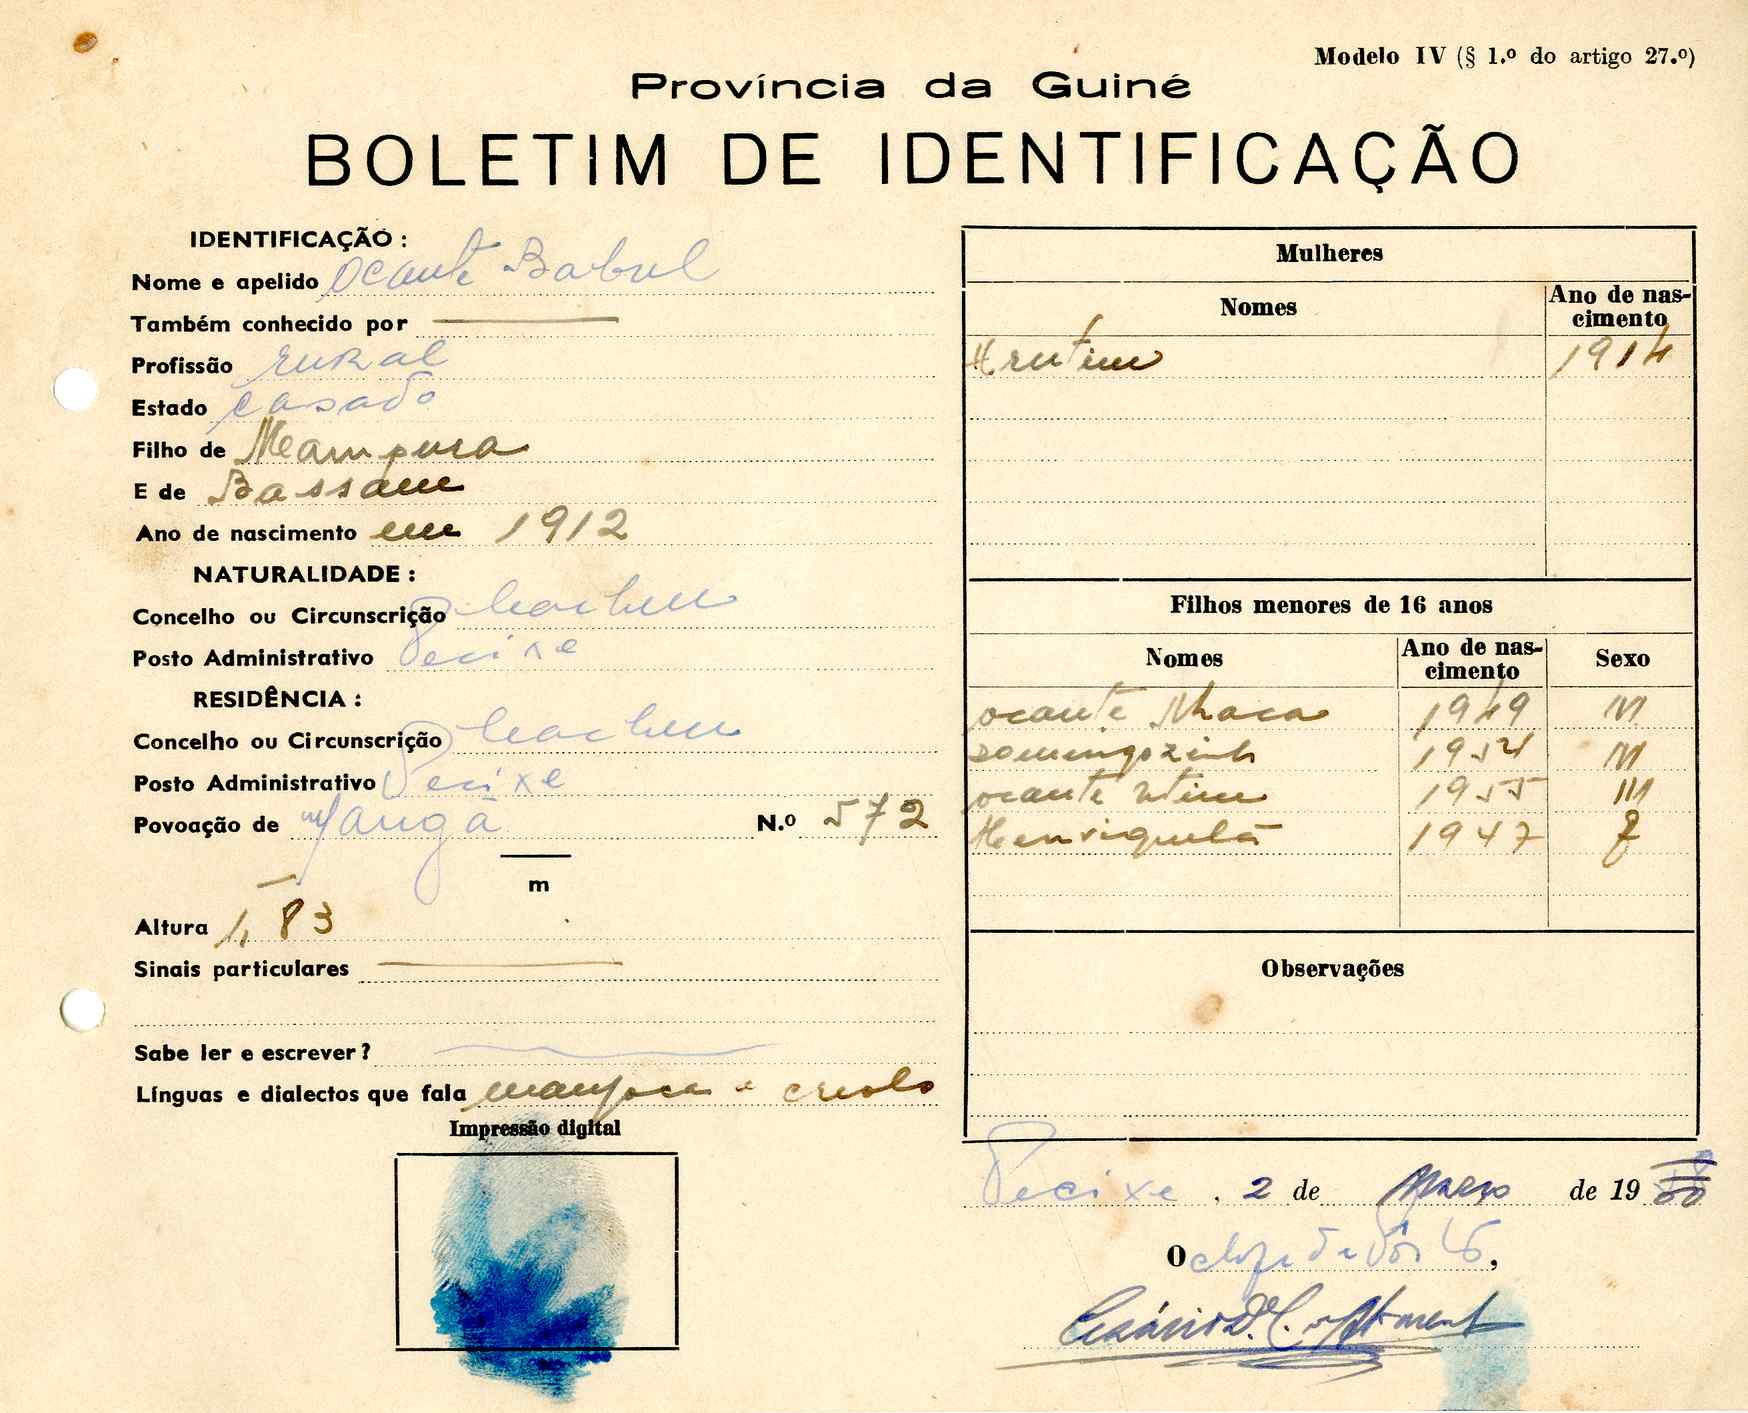 Modelo IV (§ 1.º do artigo 27.º)
Província da Guiné
BOLETIM DE IDENTIFICAÇÃO
IDENTIFICAÇÃO :
Nome e apelido Ocante Babul
Também conhecido por
Profissão rural
Estado casado
Filho de Mampura
E de Bassam
Ano de nascimento em 1912
NATURALIDADE :
Concelho ou Circunscrição Cacheu
Posto Administrativo Pecixe
RESIDÊNCIA :
Concelho ou Circunscrição Cacheu
Posto Administrativo Pecixe
Povoação de N.º 572
m
Altura 1,83
Sinais particulares
Sabe ler e escrever?
Línguas e dialectos que fala manjaca e creolo
Impressão digital
Mulheres
Nomes
Ano de nas-
cimento
1914
Filhos menores de 16 anos
Nomes
Ano de nas-
cimento
Sexo
ocante 1949 M
Domingozinh 1954 M
ocante 1955 M
Henriqueta 1947 F
Observações
Pecixe, 2 de Março de 19
O chefe de Posto,